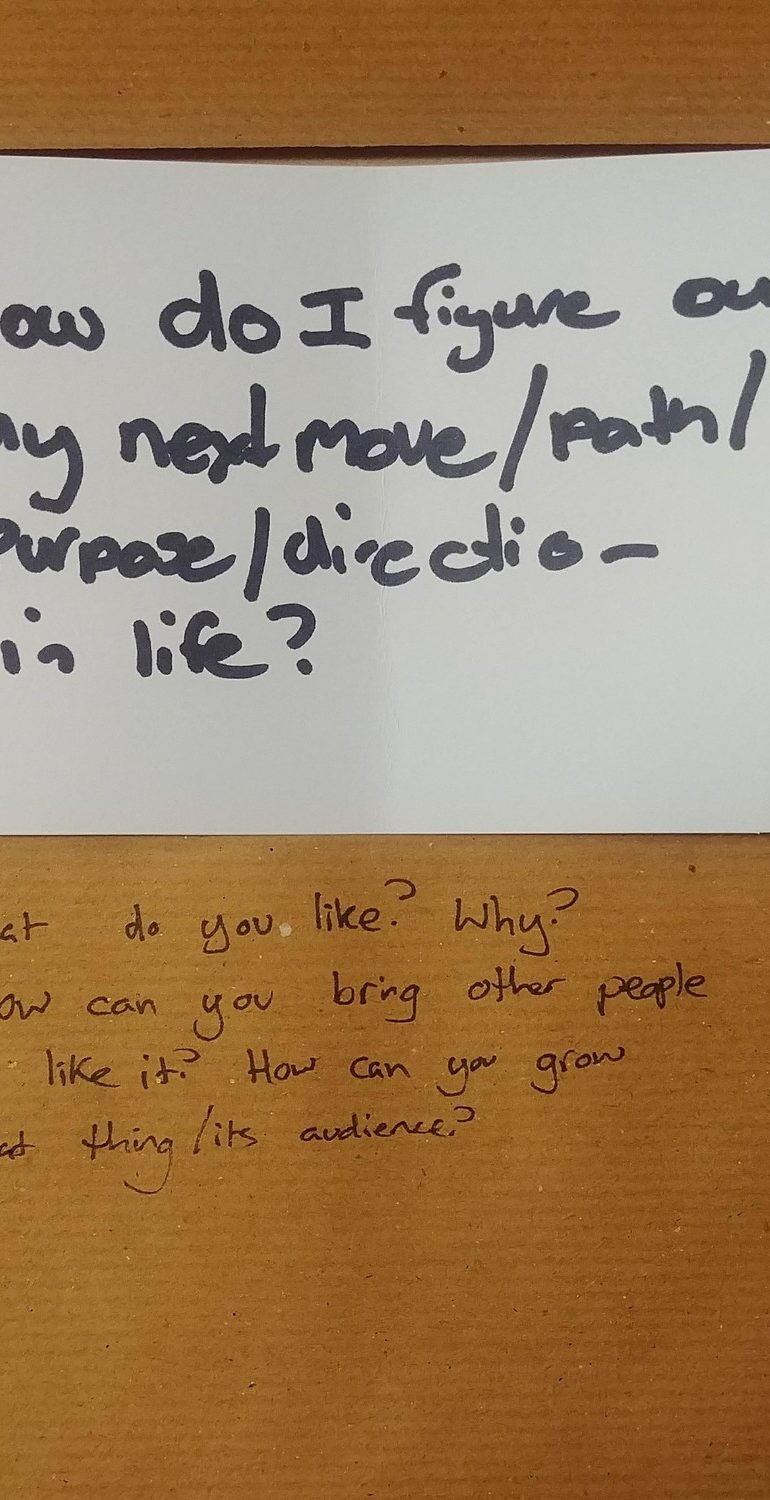 ow do I figure ou
my next move/path/
purpose/direction
in life?
at do you like? Why?
ow can you bring other people
like it? How can you grow
at thing/its audience?